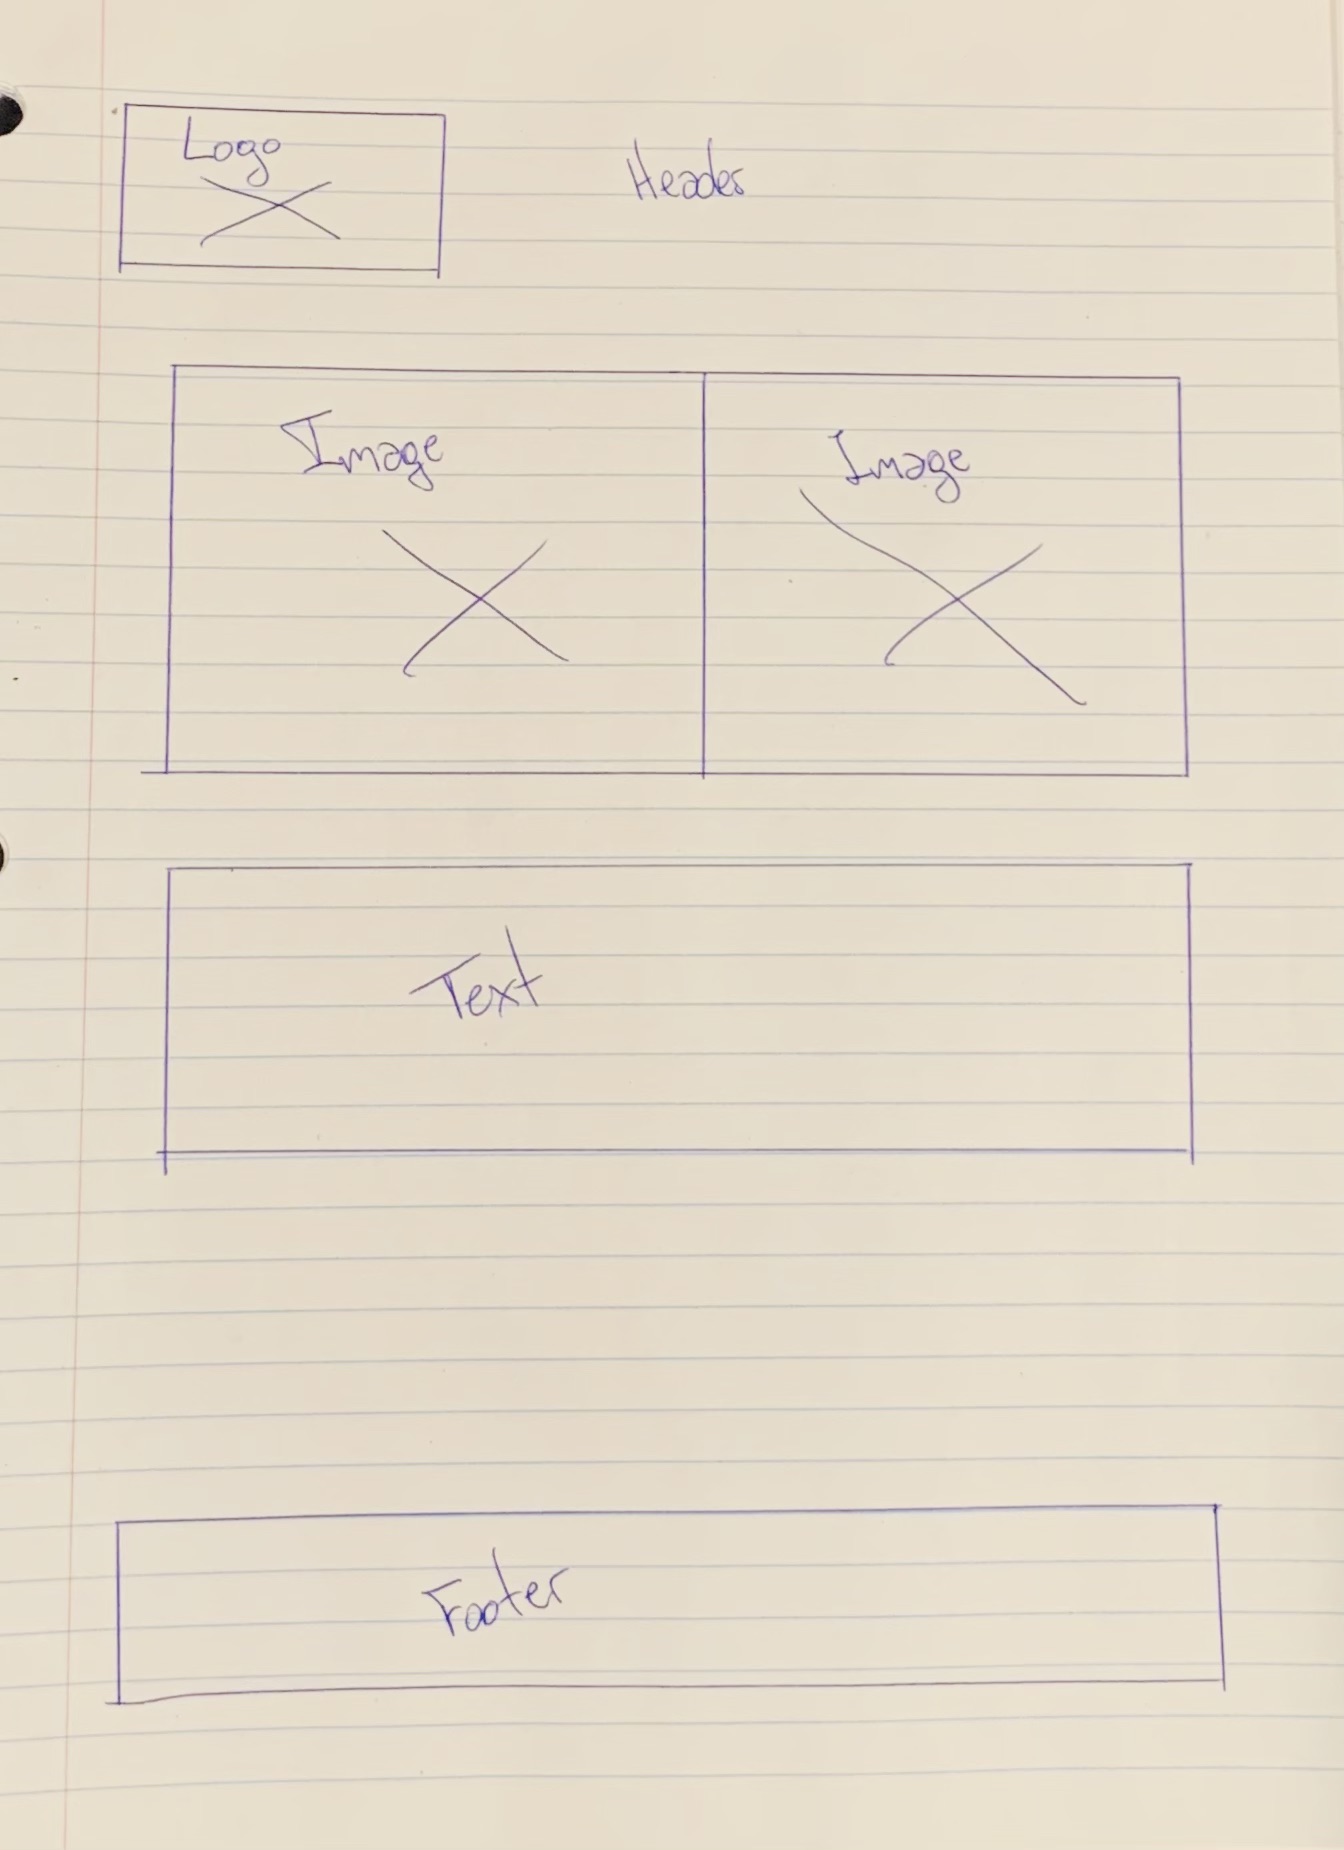 Logo
Header
Image
Image
Text
Footer